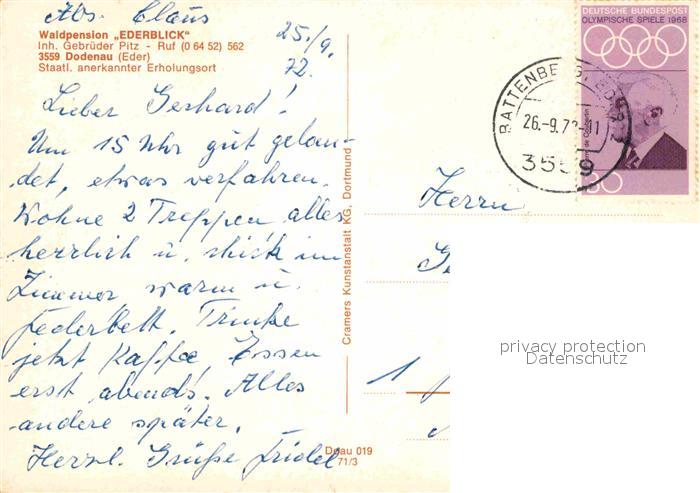 Abs. Claus
Waldpension „EDERBLICK"
Inh. Gebrüder Pitz - Ruf (0 64 52) 562
3559 Dodenau (Eder)
Staatl. anerkannter Erholungsort
25./9.
72.
Lieber Gerhard!
Um 15 Uhr gut gelan-
det, etwas verfahren.
Wohne 2 Treppen alles
herrlich u. schick im
Zimmer warm u.
Federbett. Trinke
jetzt Kaffee, Essen
erst abends. Alles
andere später.
Herzl. Grüße Friedel
Cramers Kunstanstalt KG, Dortmund
Doau 019
71/3
DEUTSCHE BUNDESPOST
OLYMPISCHE SPIELE 1968
30
BATTENBERG, EDER
26.-9.72-11
3559
Herrn
G
1
privacy protection
Datenschutz